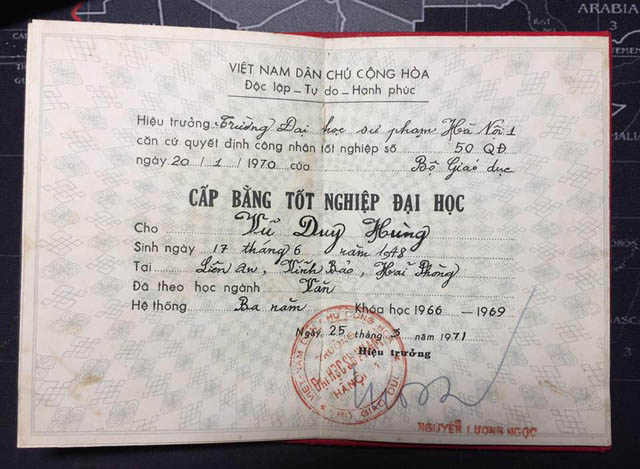 VIỆT NAM DÂN CHỦ CỘNG HÒA
Độc lập - Tự do - Hạnh phúc
Hiệu trưởng Trường Đại học sư phạm Hà Nội 1
căn cứ quyết định công nhận tốt nghiệp số 50 QĐ
ngày 20/1/1970 của Bộ Giáo dục
CẤP BẰNG TỐT NGHIỆP ĐẠI HỌC
Cho Vũ Duy Hưng
Sinh ngày 17 tháng 6 năm 1948
Tại Liên An, Vĩnh Bảo, Hải Phòng
Đã theo học ngành Văn
Hệ thống Ba năm Khóa học 1966 - 1969
Ngày 25 tháng 3 năm 1971
Hiệu trưởng
VIỆT NAM DÂN CHỦ CỘNG HÒA
TRƯỜNG
ĐẠI HỌC SƯ PHẠM
HÀ NỘI 1
BỘ GIÁO DỤC
NGUYỄN LƯƠNG NGỌC
ARABIA